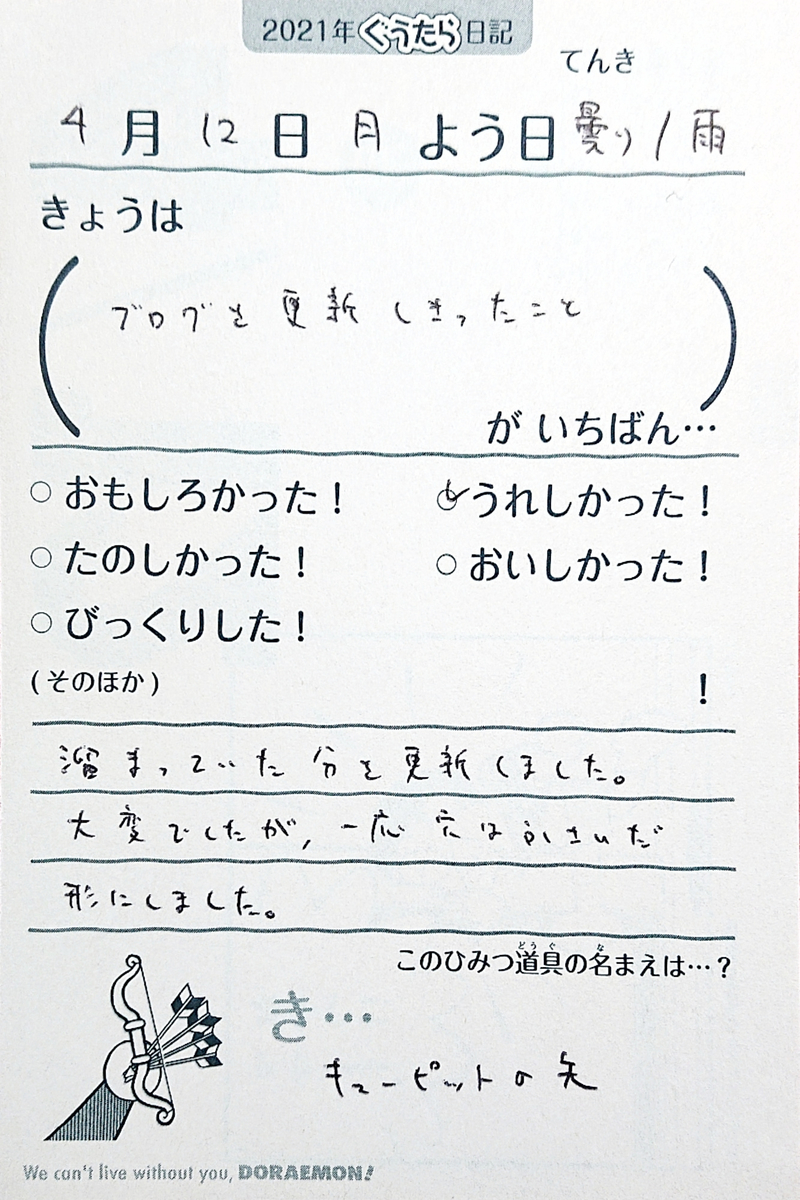 2021年ぐうたら日記
てんき
4月12日月よう日 曇り/雨
きょうは
ブログを更新しきったこと
が いちばん…
おもしろかった! うれしかった!
たのしかった! おいしかった!
びっくりした!
(そのほか) !
溜まっていた分を更新しました。
大変でしたが、一応穴はふさいだ
形にしました。
このひみつ道具の名まえは…?
どうぐ な
き…
キューピットの矢
We can't live without you, DORAEMON!